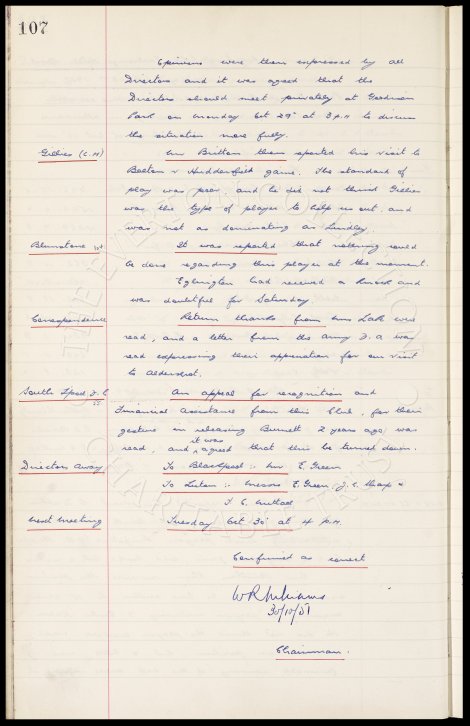 107
Opinions were then expressed by all
Directors and it was agreed that the
Directors should meet privately at Goodison
Park on Monday Oct 29th at 3 P.M to discuss
the situation more fully.
Gillies (C. H) Mr Britton then reported his visit to
Bolton v Huddersfield game. The standard of
play was poor, and he did not think Gillies
was the type of player to help us out, and
was not as dominating as Lindley.
Blunstone It was reported that nothing could
be done regarding this player at the moment.
Eglington had received a knock and
was doubtful for Saturday.
Correspondence Return thanks from Mrs Lake was
read, and a letter from the Army F.A was
read expressing their appreciation for our visit
to Aldershot.
South Lpool F.C An appeal for recognition and
Financial Assistance from this Club, for their
gesture in releasing Burnett 2 years ago was
read, and it was agreed that this be turned down.
Directors Away To Blackpool :- Mr E. Green.
To Luton :- Messrs E. Green, J. C. Sharp &
F. E. Nuttall
Next Meeting Tuesday Oct 30th at 4 P.M.
Confirmed as correct
W R Williams
30/10/51
Chairman.